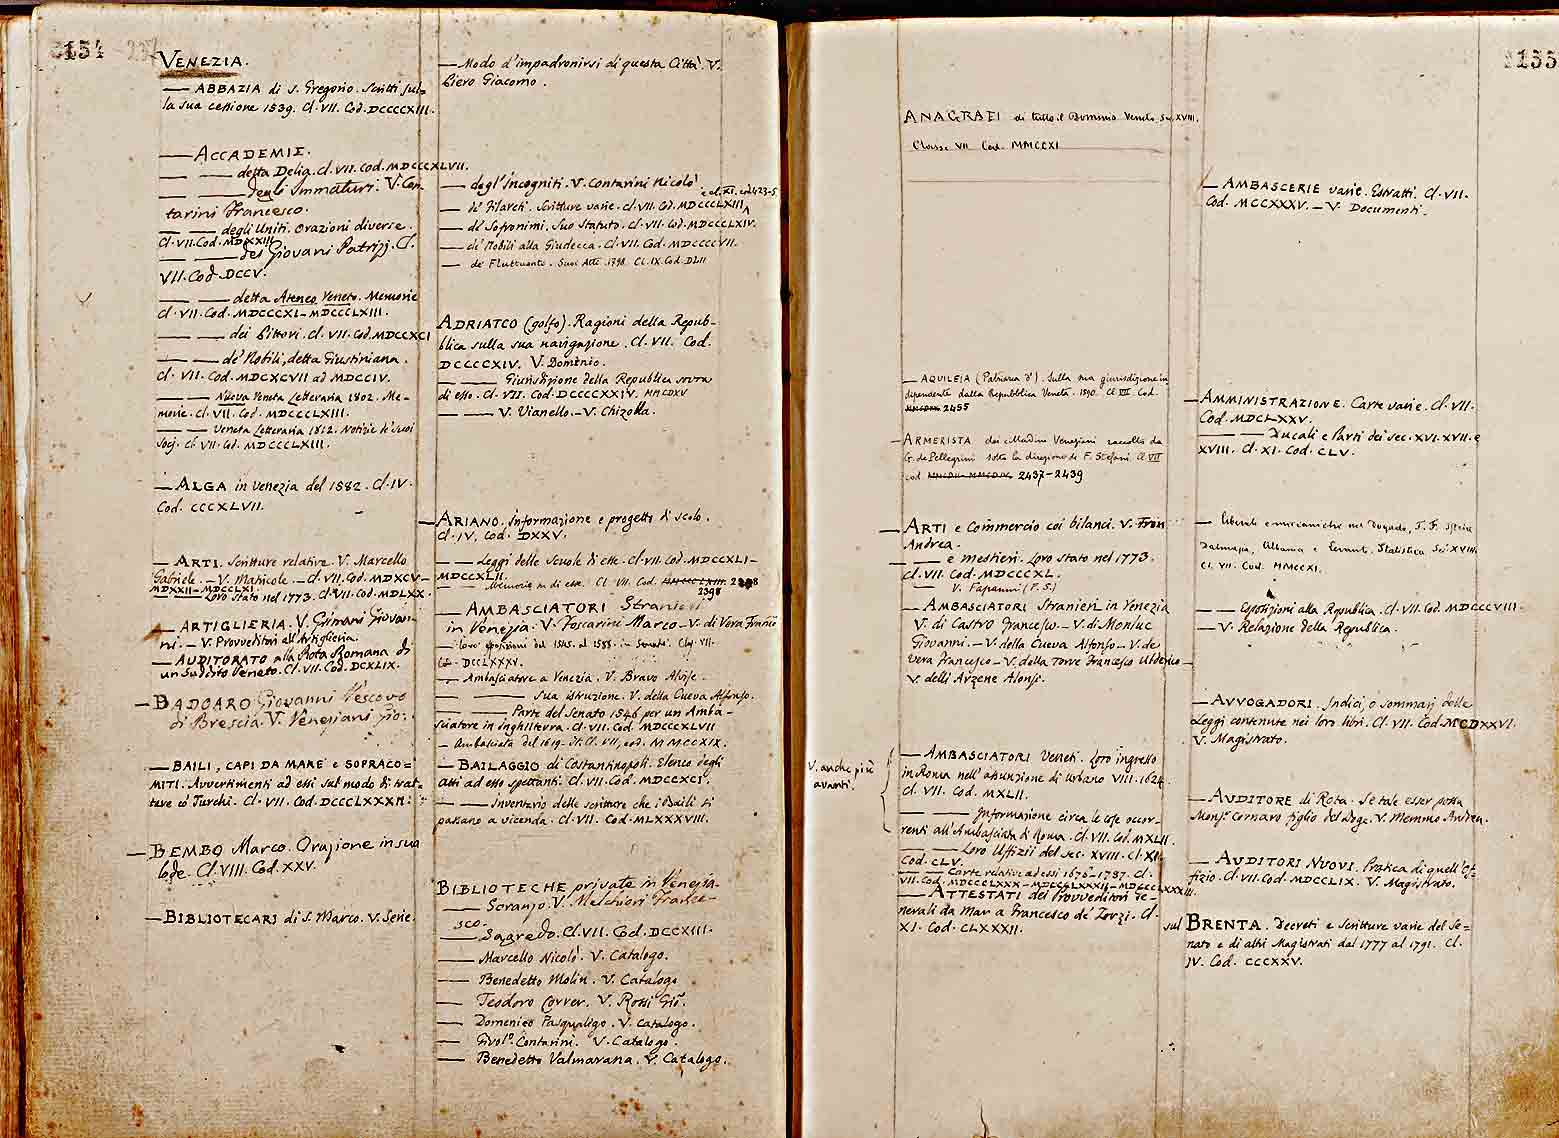 154
237
VENEZIA.
— ABBAZIA di S. Gregorio. Scritti sul=
la sua cessione 1539. Cl. VII. Cod. DCCCCXIII.
— ACCADEMIE.
— — detta Delia. Cl. VII. Cod. MDCCCXLVII.
— — degli Immaturi. V. Con
tarini Francesco.
— — degli Uniti. Orazioni diverse.
Cl. VII. Cod. MDXXIII.
— — dei Giovani Patrizj. Cl.
VII. Cod. DCCV.
— — detta Ateneo Veneto. Memorie
Cl. VII. Cod. MDCCCXI – MDCCCLXIII.
— — dei Pittori. Cl. VII. Cod. MDCCXCI
— — de' Nobili, detta Giustiniana.
Cl. VII. Cod. MDCXCVII ad MDCCIV.
— — Nuova Veneta Letteraria 1802. Me-
morie. Cl. VII. Cod. MDCCCLXIII.
— — Veneta Letteraria 1812. Notizie de' suoi
Socj. Cl. VII. Cod. MDCCCLXIII.
— ALGA in Venezia del 1582. Cl. IV.
Cod. CCCXLVII.
— ARTI. Scritture relative. V. Marcello
Gabriele. – V. Matricole. – Cl. VII. Cod. MDXCV –
MDXXII – MDCCLXI
— Loro stato nel 1773. Cl. VII. Cod. MDLXX.
— ARTIGLIERIA. V. Grimani Giovan-
ni. – V. Provveditori all'Artiglieria.
— AUDITORATO alla Rota Romana di
un Suddito Veneto. Cl. VII. Cod. DCXLIX.
— BADOARO Giovanni Vescovo
di Brescia. V. Veneziani Gio:
— BAILI, CAPI DA MARE e SOPRACO=
MITI. Avvertimenti ad essi sul modo di trat=
tare co' Turchi. Cl. VII. Cod. DCCCLXXXII.
— BEMBO Marco. Orazione in sua
lode. Cl. VIII. Cod. XXV.
— BIBLIOTECARI di S. Marco. V. Serie.
— Modo d'impadronirsi di questa Città. V.
Piero Giacomo.
— degl'Incogniti. V. Contarini Nicolò
e cl. XI. cod 423-5
— de' Filareti. Scritture varie. Cl. VII. Cod. MDCCCLXIII
— de' Sofronimi, Suo Statuto. Cl. VII. Cod. MDCCCLXIV.
— de' Nobili alla Giudecca. Cl. VII. Cod. MDCCCCVII.
— de' Fluttuante. Suoi Atti. 1798. Cl. IX. Cod. DLII
ADRIATCO (golfo). Ragioni della Repub-
blica sulla sua navigazione. Cl. VII. Cod.
DCCCCXIV. V. Dominio.
— — Giurisdizione della Repubblica sovra
di esso. Cl. VII. Cod. DCCCCXXIV. MMCDXV
— — V. Vianello. – V. Chizolla.
— ARIANO. Informazione e progetto di scolo.
Cl. IV. Cod. DXXV.
— Leggi delle Scuole di esse. Cl. VII. Cod. MDCCXLI –
MDCCXLII.
— Memorie di esse. Cl. VII. Cod. 2398
2398
— AMBASCIATORI Stranieri
in Venezia. V. Foscarini Marco – V. di Vera Franco
— Loro esposizioni dal 1545. al 1588. in Senato. Cl. VII.
Cod. DCCLXXXV.
— Ambasciatore a Venezia. V. Bravo Alvise.
— — Sua istruzione. V. della Cueva Alfonso.
— — Parte del Senato 1546 per un Amba-
sciatore in Inghilterra. Cl. VII. Cod. MDCCCXLVII
— Ambasciata del 1619. It. Cl. VII, cod. MMCCXIX.
— BAILAGGIO di Costantinopoli. Elenco degli
atti ad esso spettanti. Cl. VII. Cod. MDCCXCI.
— — Inventario delle scritture che i Baili si
passano a vicenda. Cl. VII. Cod. MLXXXVIII.
BIBLIOTECHE private in Venezia.
— Soranzo. V. Melchiori France-
sco.
— Sagredo. Cl. VII. Cod. DCCXIII.
— Marcello Nicolò. V. Catalogo.
— Benedetto Molin. V. Catalogo
— Teodoro Correr. V. Rossi Gio.
— Domenico Pasqualigo. V. Catalogo.
— Girol.º Contarini. V. Catalogo.
— Benedetto Valmarana. V. Catalogo.
155
ANAGRAFI di tutto il Dominio Veneto. Sec. XVIII.
Classe VII Cod. MMCCXI
— AQUILEIA (Patriarca d'). Sulla sua giurisdizione in
dipendente dalla Repubblica Veneta. 1890. Cl VII Cod.
2455
— ARMERISTA dei Veneziani raccolto da
G. de Pellegrini sotto la direzione di F. Stefani. Cl. VII
cod. 2437–2439
— ARTI e Commercio coi bilanci. V. Tron
Andrea.
— — e mestieri. Loro stato nel 1773.
Cl. VII. Cod. MDCCCXL.
— V. Fapanni (F. S.)
— AMBASCIATORI Stranieri in Venezia
V. di Castro Francesco. – V. di Monluc
Giovanni – V. della Cueva Alfonso – V. de
Vera Francesco – V. della Torre Francesco Ulderico –
V. delli Arzene Alonso.
V. anche più
avanti.
— AMBASCIATORI Veneti. Loro ingresso
in Roma nell'assunzione di Urbano VIII. 1624.
Cl. VII. Cod. MXLII.
— — Informazione circa le cose occor-
renti all'Ambasciata di Roma. Cl. VII. Cod. MXLII.
— — Loro Uffizii del sec. XVIII. Cl. XI.
Cod. CLV.
— — Carte relative ad essi 1675–1787. Cl.
VII. Cod. MDCCCLXXX – MDCCCLXXXII – MDCCCLXXXIII.
— ATTESTATI dei Provveditori Ge-
nerali da Mar a Francesco de' Zorzi. Cl.
XI. Cod. CLXXXII.
— AMBASCERIE varie. Estratti. Cl. VII.
Cod. MCCXXXV. – V. Documenti.
— AMMINISTRAZIONE. Carte varie. Cl. VII.
Cod. MDCLXXV.
— — Ducali e Parti dei sec. XVI. XVII. e
XVIII. Cl. XI. Cod. CLV.
— liberali e meccaniche nel Dogado, T. F. Istria
Dalmazia, Albania e Levante. Statistica Sec. XVIII.
Cl. VII. Cod. MMCCXI.
— — Esposizioni alla Repubblica. Cl. VII. Cod. MDCCCVIII.
— V. Relazione della Repubblica.
— AVVOGADORI. Indici, o sommarj delle
Leggi contenute nei loro libri. Cl. VII. Cod. MCDXXVI.
V. Magistrato.
— AUDITORE di Rota. Se tale esser possa
Monsr. Cornaro figlio del Doge. V. Memmo Andrea.
— AUDITORI NUOVI. Pratica di quell'Of-
fizio. Cl. VII. Cod. MDCCLIX. V. Magistrato.
sul BRENTA. Decreti e Scritture varie del Se=
nato e di altri Magistrati dal 1777 al 1791. Cl.
IV. Cod. CCCXXV.